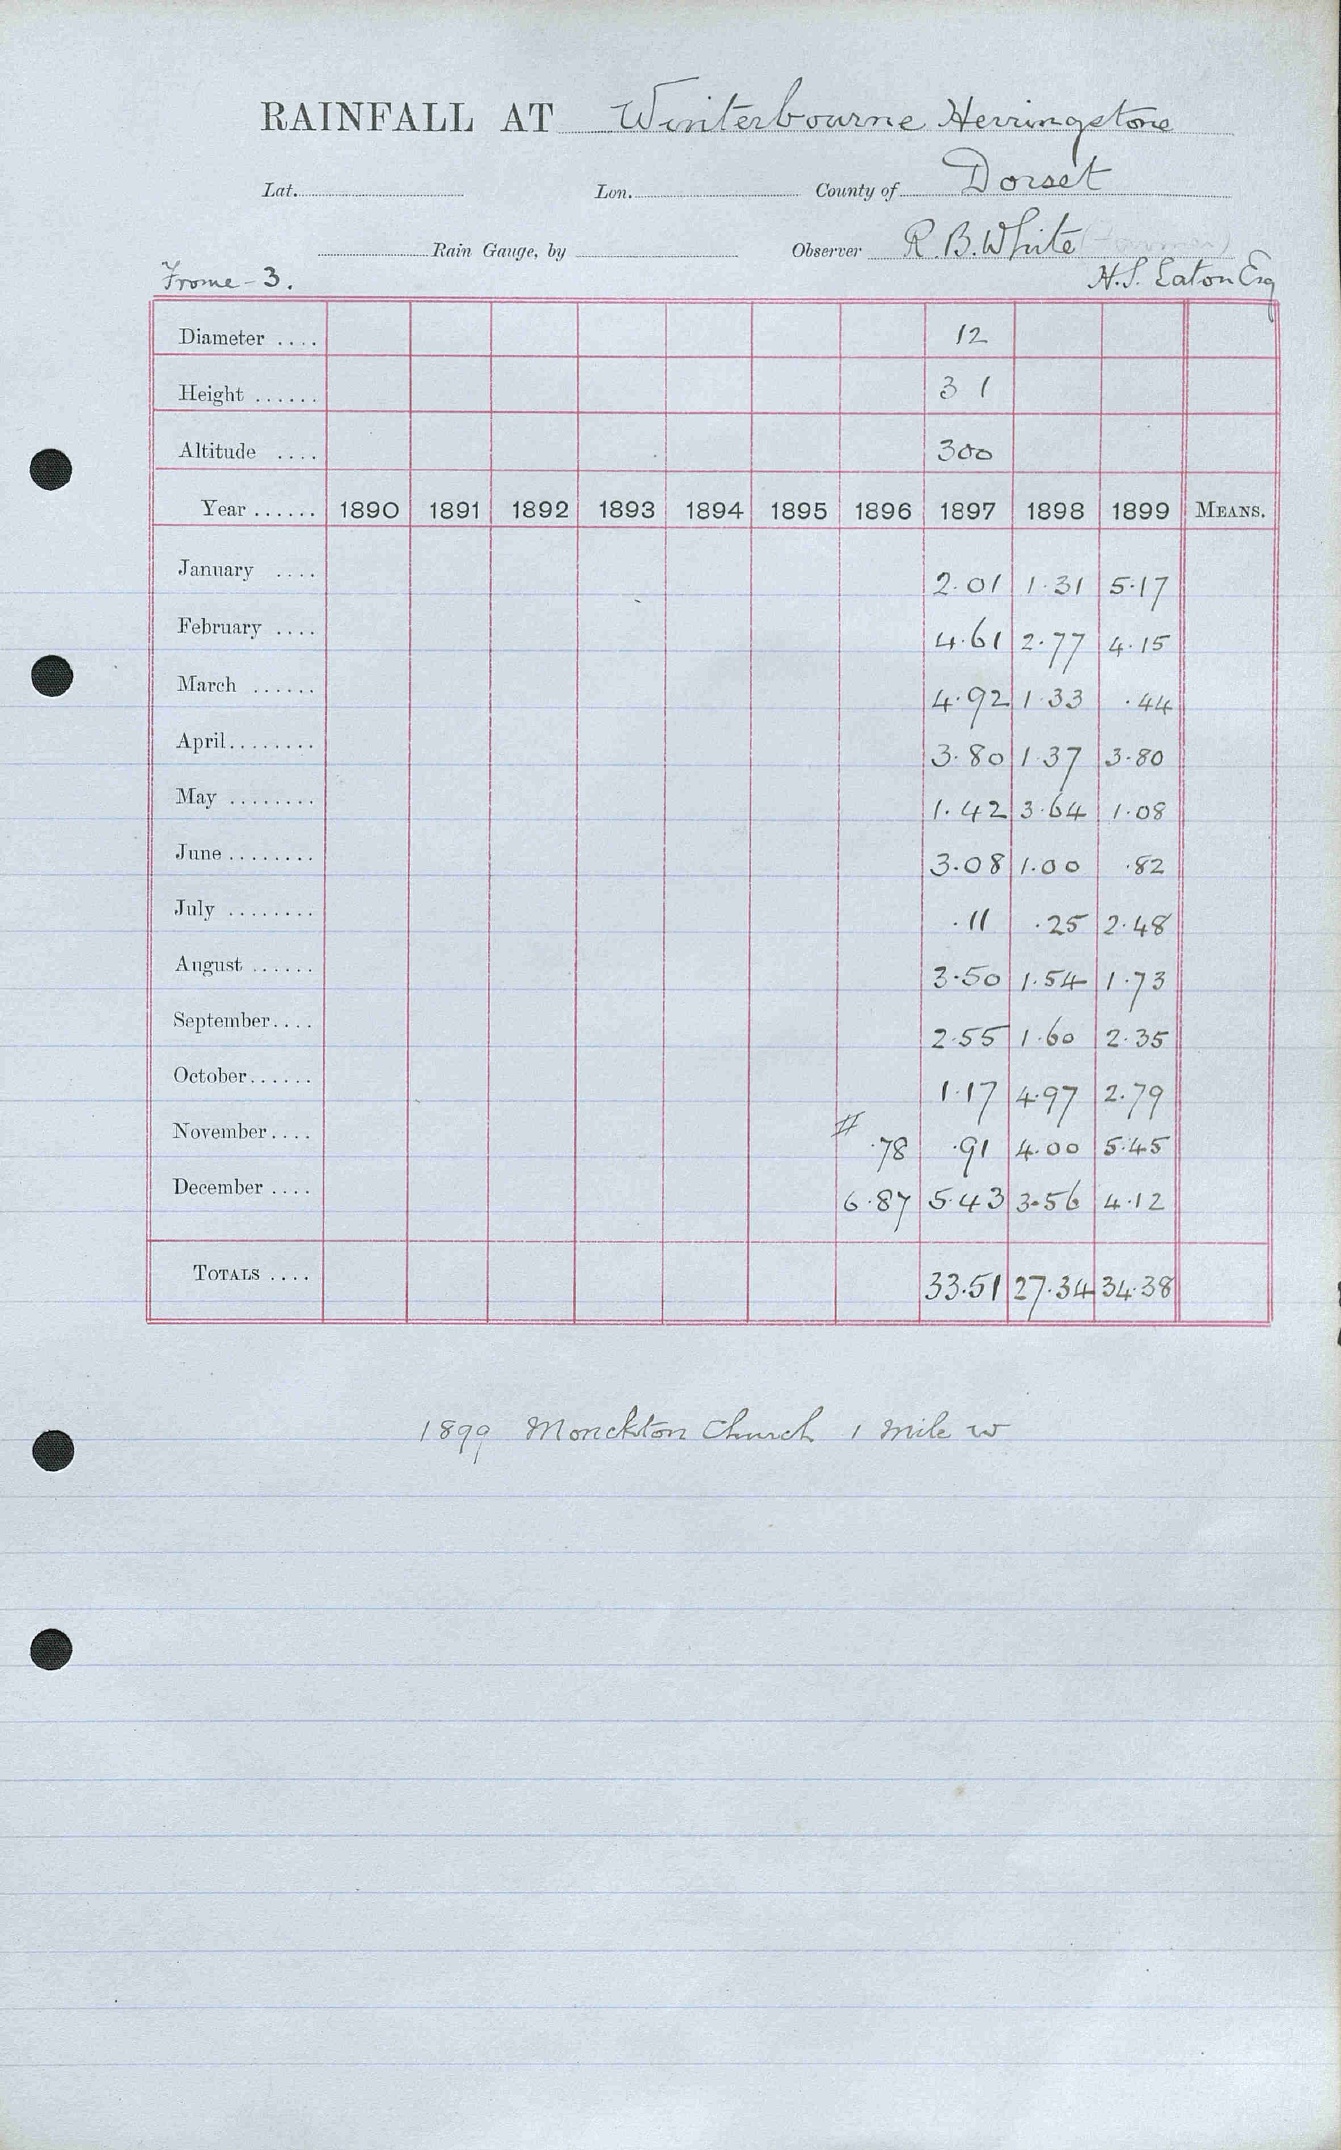 RAINFALL AT Winterbourne Herringstone
Lat. Lon. County of Dorset
Rain Gauge, by Observer R. B. White (Farmer)
Frome - 3. H. S. Eaton Esq
Diameter .... 12
Height ...... 3 1
Altitude .... 300
Year ...... 1890 1891 1892 1893 1894 1895 1896 1897 1898 1899 MEANS.
January .... 2.01 1.31 5.17
February .... 4.61 2.77 4.15
March ...... 4.92 1.33 .44
April........ 3.80 1.37 3.80
May ........ 1.42 3.64 1.08
June ........ 3.08 1.00 .82
July ........ .11 .25 2.48
August ...... 3.50 1.54 1.73
September.... 2.55 1.60 2.35
October...... 1.17 4.97 2.79
November.... # .78 .91 4.00 5.45
December .... 6.87 5.43 3.56 4.12
TOTALS .... 33.51 27.34 34.38
1899 Monckton Church 1 mile W